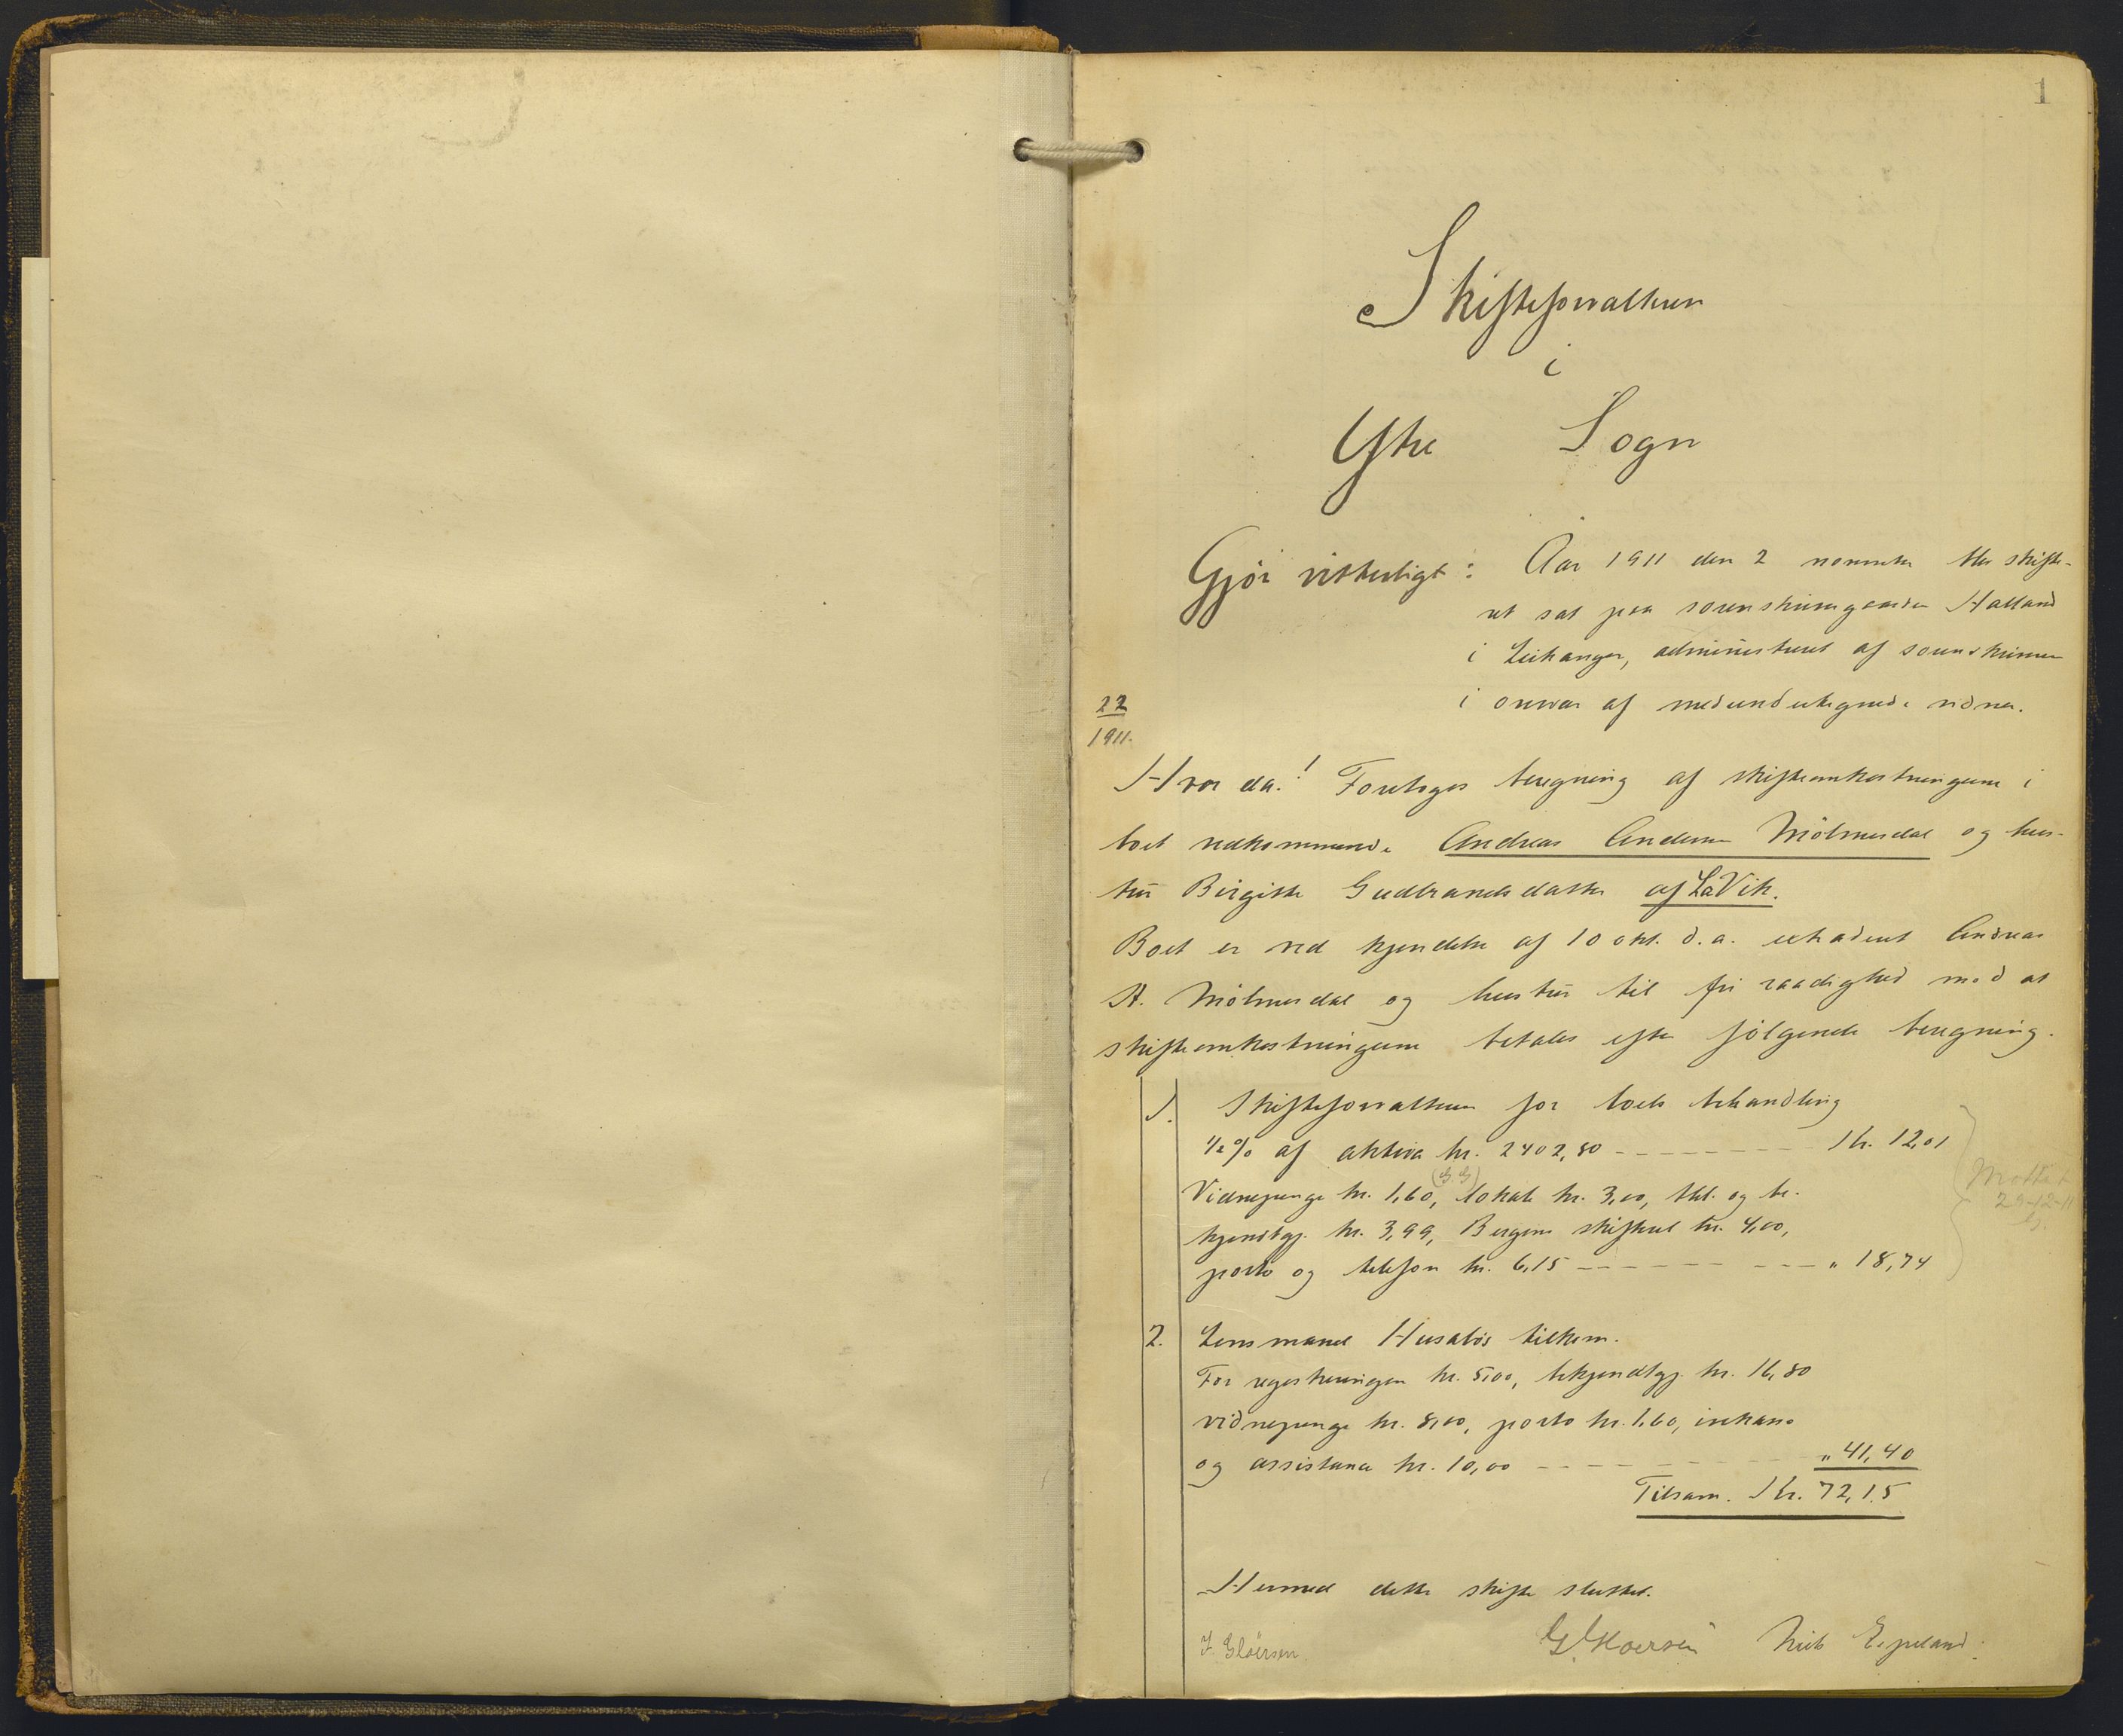 1
Skifteforvalteren
i
Ytre Sogn
Gjör vitterligt: Aar 1911 den 2 november blev skifte-
ret sat paa sorenskrivergaarden Halland
i Leikanger, administreret af sorenskriveren
i overvær af medundertegnede vidner.
22
1911.
Hvor da! Foretoges beregning af skifteomkostningerne i
boet vedkommende Andreas Andersen Mölmesdal og hus-
tru Birgitte Gudbrandsdatter af Lavik.
Boet er ved kjendelse af 10 okt. d.a. extraderet Andreas
A. Mölmesdal og hustru til fri raadighed mod at
skifteomkostningerne betales efter følgende beregning.
1. Skifteforvalteren for boets behandling
1/2 % af aktiva kr. 2402,80 - - - - - - - - Kr. 12,01
(G.G)
Vidnepenge kr. 1,60, lokale kr. 3,00, tkl. og be-
kjendtgj. kr. 3,99, Bergens skifteret kr. 4,00,
porto og telefon kr. 6,15 - - - - - - - - - " 18,74
Mottat
29-12-11
2. Lensmand Husabös tilkom.
For registreringen kr. 5,00, bekjendtgj. kr. 16,80
vidnepenge kr. 8,00, porto kr. 1,60, inkasso
og assistance kr. 10,00 - - - - - - - - " 41,40
Tilsam. Kr. 72,15
Hermed dette skifte sluttet.
J Glöersen G. Gloersen Nils Espeland.